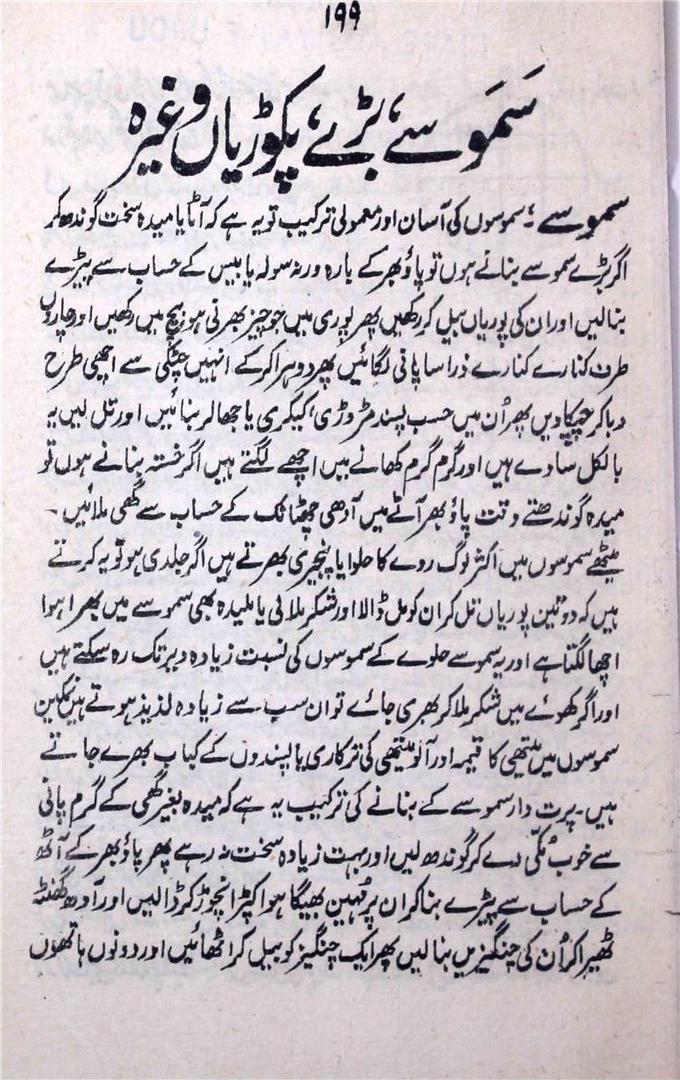 ۱۹۹
سَمَوسے، بڑے، پکوڑیاں وغیرہ
سموسے :۔ سموسوں کی آسان اور معمولی ترکیب تو یہ ہے کہ آٹا یا میدہ سخت گوندھ کر
اگر بڑے سموسے بنانے ہوں تو پاؤ بھر کے بارہ ورنہ سولہ یا بیس کے حساب سے پیڑے
بنالیں اور ان کی پوریاں بیل کر رکھیں پھر پوری میں جو چیز بھرنی ہو بیچ میں رکھیں اور چاروں
طرف کنارے کنارے ذرا سا پانی لگائیں پھر دوہرا کرکے انہیں چٹکی سے اچھی طرح
دبا کر چپکا دیں پھر اُن میں حسب پسند مڑوڑی، کیکری یا جھالر بنائیں اور تل لیں یہ
بالکل سادے ہیں اور گرم گرم کھانے میں اچھے لگتے ہیں اگر خستہ بنانے ہوں تو
میدہ گوندھتے وقت پاؤ بھر آٹے میں آدھی چھٹانک کے حساب سے گھی ملائیں ۔
میٹھے سموسوں میں اکثر لوگ روے کا حلوا یا پنجیری بھرتے ہیں اگر جلدی ہو تو یہ کرتے
ہیں کہ دو تین پوریاں تل کر ان کو مل ڈالا اور شکر ملالی یا ملیدہ بھی سموسے میں بھرا ہوا
اچھا لگتا ہے اور یہ سموسے حلوے کے سموسوں کی نسبت زیادہ دیر تک رہ سکتے ہیں
اور اگر کھوئے میں شکر ملا کر بھری جائے تو ان سب سے زیادہ لذیذ ہوتے ہیں نمکین
سموسوں میں میتھی کا قیمہ اور آلو میتھی کی ترکاری یا پسندوں کے کباب بھرے جاتے
ہیں ۔ پرت دار سموسے کے بنانے کی ترکیب یہ ہے کہ میدہ بغیر گھی کے گرم پانی
سے خوب مُکّی دے کر گوندھ لیں اور بہت زیادہ سخت نہ رہے پھر پاؤ بھر کے آٹھ
کے حساب سے پیڑے بناکر ان پر مہین بھیگا ہوا کپڑا نچوڑ کر ڈالیں اور آدھ گھنٹہ
ٹھیرا کر اُن کی چنگیزیں بنالیں پھر ایک چنگیز کو بیل کر اٹھائیں اور دونوں ہاتھوں